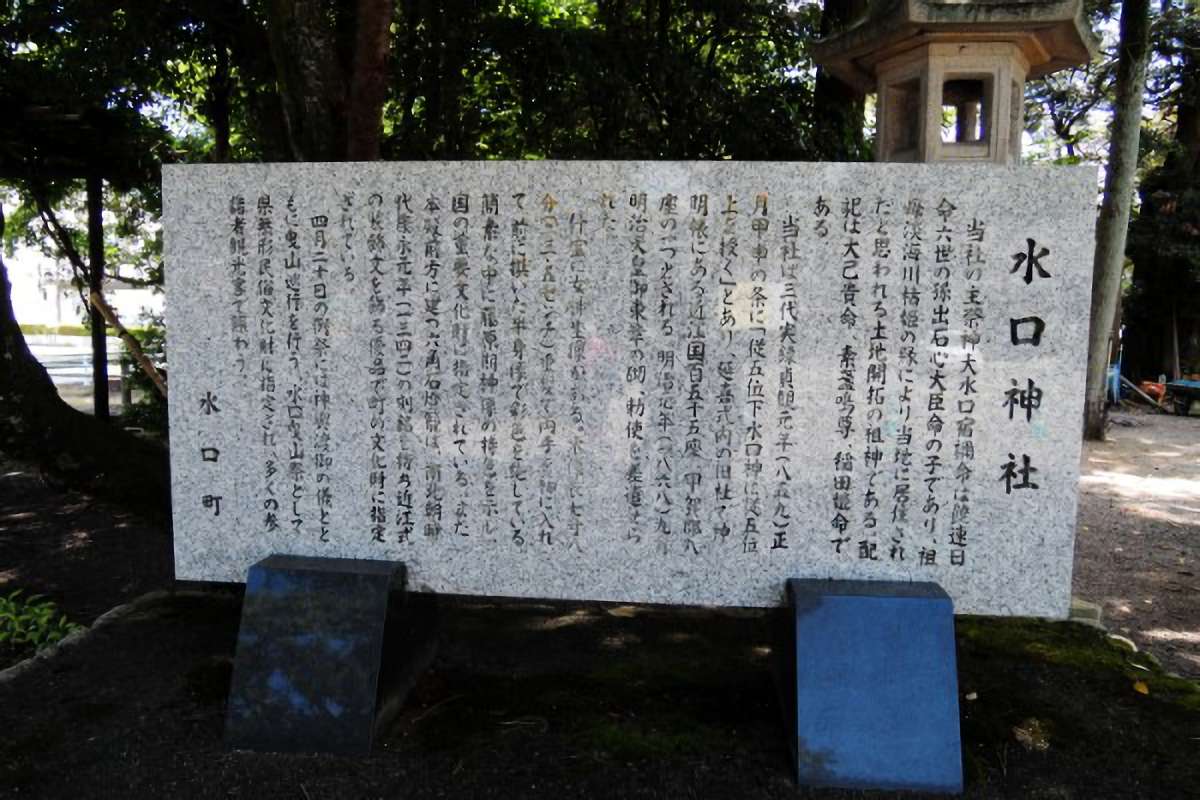 水口神社
当社の主祭神大水口宿禰命は饒速日
命六世の孫出石心大臣命の子であり、祖
母淡海川枯姫の縁により当地に居住され
だと思われる土地開拓の祖神である。配
祀は大己貴命、素盞嗚尊、稲田媛命で
ある
当社は三代実録貞観元年(八五九)正
月甲申の条に「従五位下水口神に従五位
上を授く」とあり、延喜式内の旧社で神
明帳にある近江国百五十五座、甲賀郡八
座の一つとされる。明治元年(一八六八)九月
明治天皇御東幸の砌、勅使を差遣せら
れた
什宝に女神坐像がある。木像、丈七寸八
分(二三・五センチ)重板で両手を袖に入れ
て前に横いた半身像で彩色を施している。
簡素な中に藤原期神像の特色を示し、
国の重要文化財に指定されている。また
本殿前方に建つ六角石燈籠は、南北朝時
代康永元年(一三四二)の刻銘を持ち近江式
の装飾文を飾る優品で町の文化財に指定
されている
四月二十日の例祭には神輿渡御の儀とと
もに曳山巡行を行う。水口曳山祭として
県無形民俗文化財に指定され、多くの参
詣者観光客で賑わう。
水口町